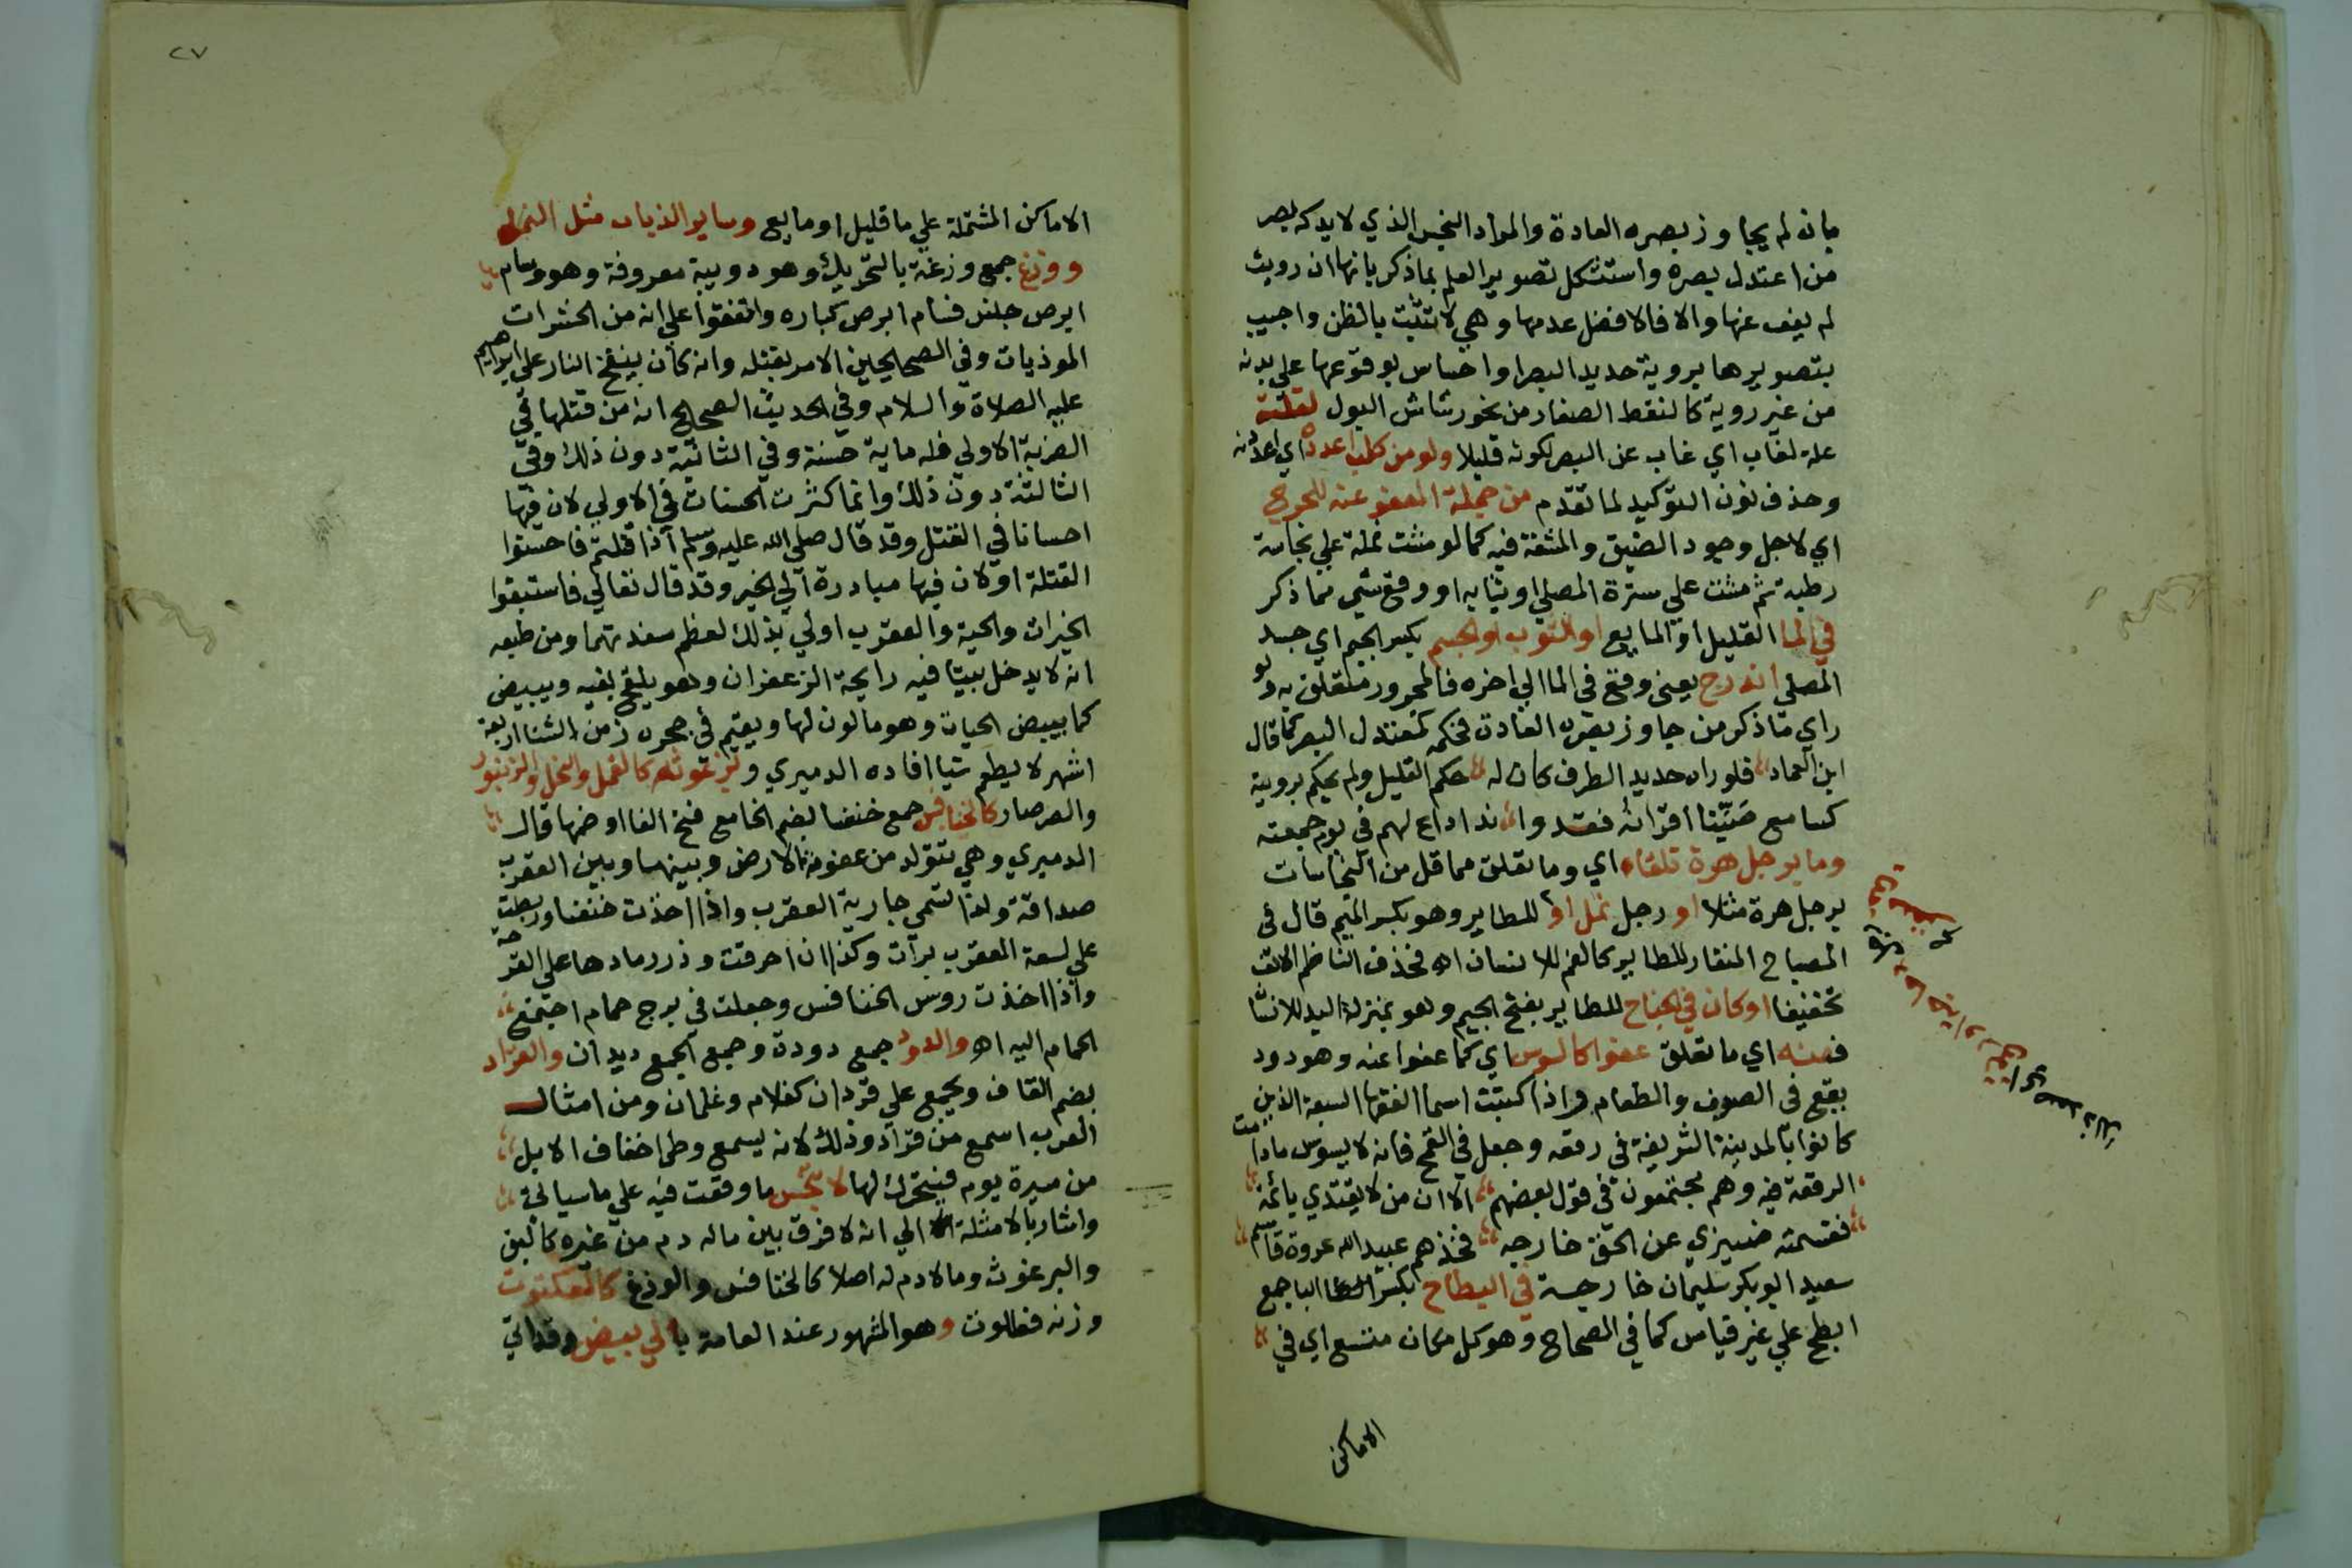 بانه لم يجاوز بصره العادة والمراد النجس الذي لا يدركه بصر
من اعتدل بصره واستشكل تصوير العلم بما ذكر بانها ان رويت
لم يعف عنها والا فالافضل عدمها وهي لا تثبت بالظن واجيب
بتصويرها بروية حديد البصر او احساس بوقوعها علي بدنه
من غير روية كالنقط الصغار من نحو رشاش البول لقلته
علة لغاب اي غاب عن البصر لكونه قليلا ولو من كلب اعدده اي اعددنه
وحذف نون التوكيد لما تقدم من جملة المعفو عنه للحرج
اي لاجل وجود الضيق والمشقة فيه كما لو مشت نملة علي نجاسة
رطبة ثم مشت علي سترة المصلي او ثيابه او وقع شي مما ذكر
في الما القليل او المايع او الثوب او الجسم بكسر الجيم اي جسد
المصلي اندرج يعني وقع في الما الي اخره فالمجرور متعلق به ولو
راي ما ذكر من جاوز بصره العادة فحكمه كمعتدل البصر كما قال
ابن العماد فلو راه حديد الطرف كان له حكم القليل ولم يحكم بروية
كسامع صيتا اقرانه فقدوا ندا اداع لهم في يوم جمعته
وما برجل هرة تلقاه اي وما تعلق مما قل من النجاسات
برجل هرة مثلا او رجل نمل او للطاير وهو بكسر الميم قال في
المصباح المنقار للطاير كالفم للانسان اه فحذف الناظم الالف
تخفيفا او كان في الجناح للطاير بفتح الجيم وهو بمنزلة اليد للانسا
فعنه اي ما تعلق عفوا كالسوس اي كما عفوا عنه وهو دود
يقع في الصوف والطعام واذا كتبت اسما الفقها السبعة الذين
كانوا بالمدينة الشريفة في رقعة وجعل في القمح فانه لا يسوس مادامت
الرقعة فيه وهم مجتمعون في قول بعضهم الا ان من لا يقتدي بائمة
فقسمته ضيزي عن الحق خارجه فخذهم عبيد الله عروة قاسم
سعيد ابو بكر سليمان خارجة في البطاح بكسر البا جمع
ابطح علي غير قياس كما في الصحاح وهو كل مكان متسع اي في
الاماكن
٢٧
الاماكن المشتملة علي ما قليل او مايع وساير الذباب مثل النمل
ووزغ جمع وزغة بالتحريك وهو دويبة معروفة وهو وسام
ابرص جنس فسام ابرص كباره واتفقوا علي انه من الحشرات
الموذيات وفي الصحيحين الامر بقتله وانه كان ينفخ النار علي ابراهيم
عليه الصلاة والسلام وفي الحديث الصحيح انه من قتلها في
الضربة الاولي فله ماية حسنة وفي الثانية دون ذلك وفي
الثالثة دون ذلك وانما كثرت الحسنات في الاولي لان فيها
احسانا في القتل وقد قال صلي الله عليه وسلم اذا قتلتم فاحسنوا
القتلة او لان فيها مبادرة الي الخير وقد قال تعالي فاستبقوا
الخيرات والحية والعقرب اولي بذلك لعظم مفسدتهما ومن طبعه
انه لا يدخل بيتا فيه رايحة الزعفران وهو يلقح بفيه ويبيض
كما يبيض الحيات وهو مالون لها ويقيم في جحره زمن الشتا اربعة
اشهر لا يطعم شيا افاده الدميري و كالقمل والنحل والزنبور
والصرصار كالخنافس جمع خنفسا بضم الخا مع فتح الفا او ضمها قال
الدميري وهي تتولد من عفونة الارض وبينها وبين العقرب
صداقة ولذا تسمي جارية العقرب واذا اخذت خنفسا وربطت
علي لسعة العقرب برات وكذا ان احرقت وذر رمادها علي القرحة
واذا اخذت روس الخنافس وجعلت في برج حمام اجتمع
الحمام اليه اه والدود جمع دودة وجمع الجمع ديدان والقراد
بضم القاف ويجمع علي قردان كغلام وغلمان ومن امثال
العرب اسمع من قراد وذلك لانه يسمع وطي اخفاف الابل
من مسيرة يوم فيتحرك لها لا تنجس ما وقعت فيه علي ما سياتي
واشار بالامثلة الي انه لا فرق بين ماله دم من غيره كالبق
والبرغوث وما لا دم له اصلا كالخنافس والوزغ كالعنكبوت
وزنه فعللوت وهو المشهور عند العامة بابي بيض وقد اتي